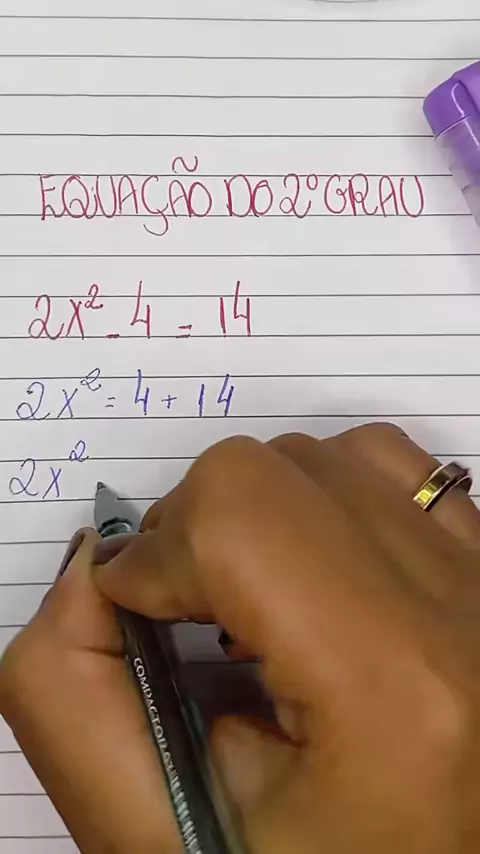 EQUAÇÃO DO 2º GRAU
2x² - 4 = 14
2x² = 4 + 14
2x²
COMPACTOR 0.7